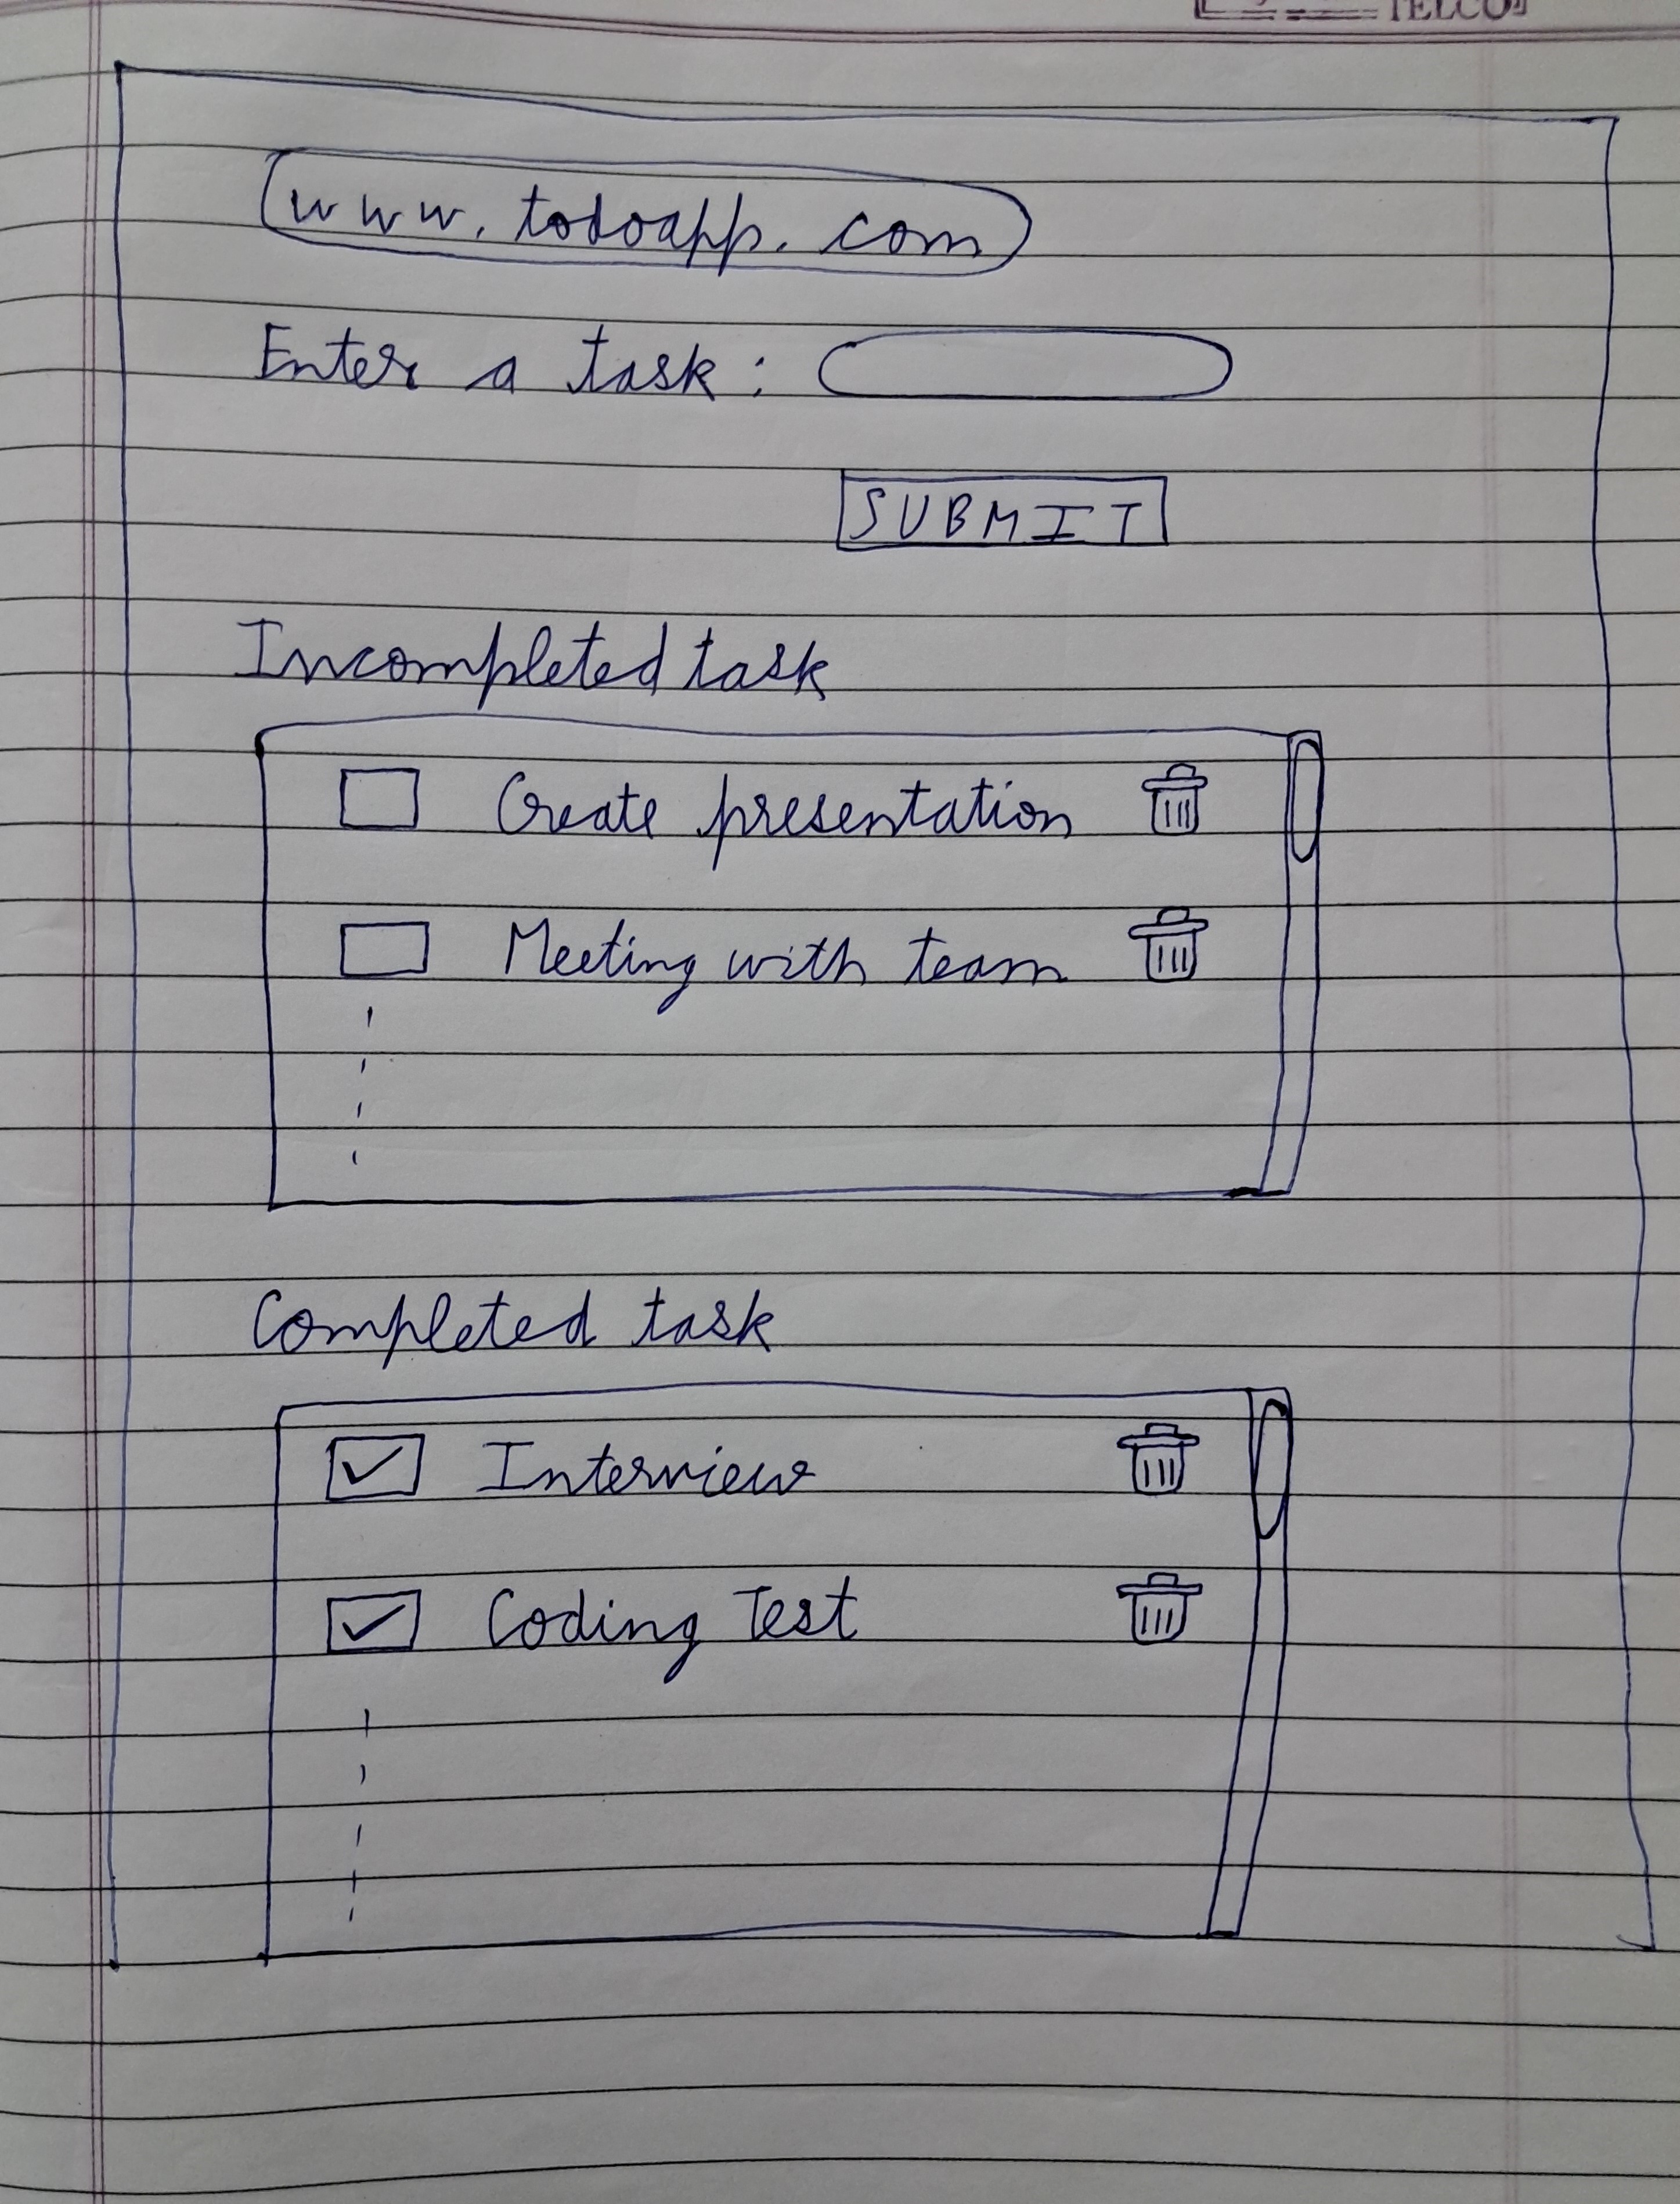 TELCO
www.todoapp.com
Enter a task :
SUBMIT
Incompleted task
Create presentation
Meeting with team
Completed task
Interview
Coding Test